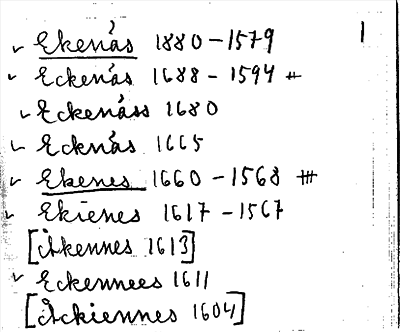 ✓ Ekenäs 1880 – 1579 1
✓ Eckenäs 1688 – 1594 #
✓ Eckenäss 1680
✓ Ecknäs 1665
✓ Ekenes 1660 – 1568 #
✓ Ekienes 1617 – 1567
[Äkennes 1613]
✓ Eckennees 1611
[Äckiennes 1604]